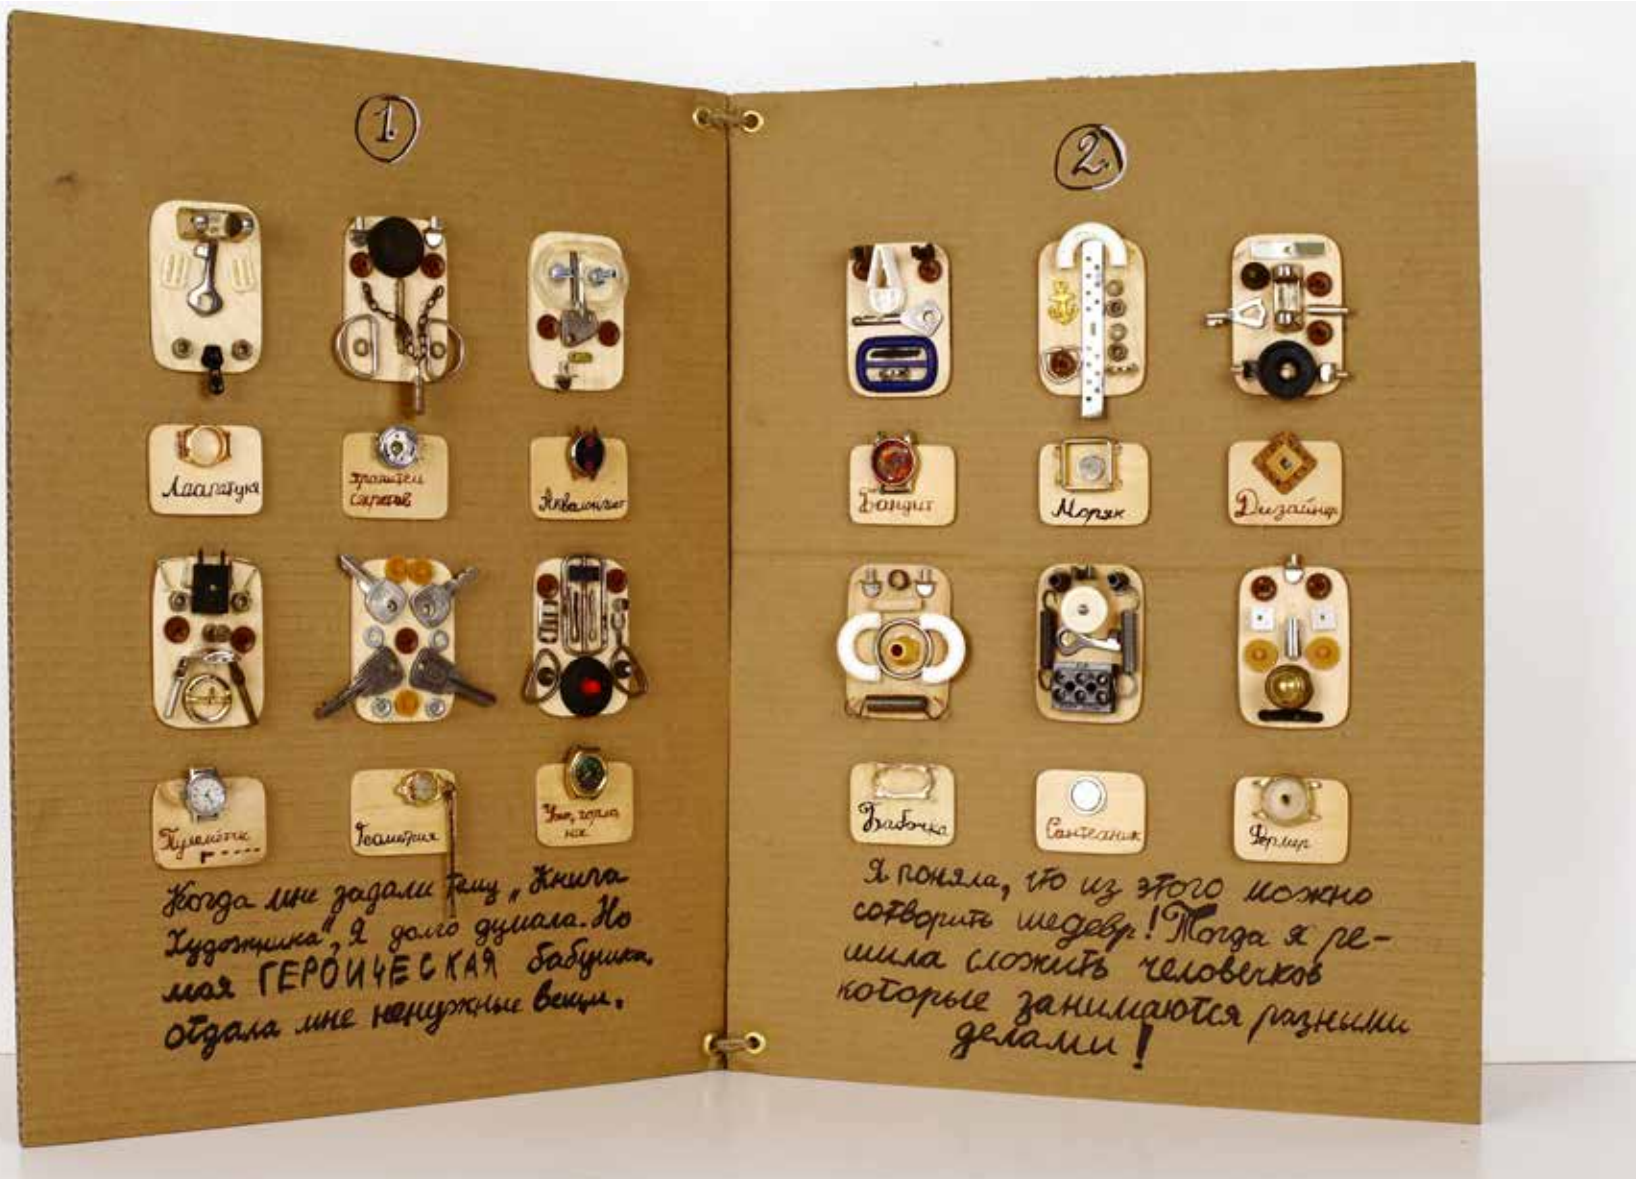 1.
Хранитель
секретов
Аквалангист
Пулемётчик
Геометрия
Ухо, горло,
нос
Когда мне задали тему „Книга
Художника", Я долго думала. Но
моя ГЕРОИЧЕСКАЯ бабушка
отдала мне ненужные вещи.
2.
Бандит
Моряк
Дизайнер
Бабочка
Сантехник
Фермер
Я поняла, что из этого можно
сотворить шедевр! Тогда я ре-
шила сложить человечков
которые занимаются разными
делами!